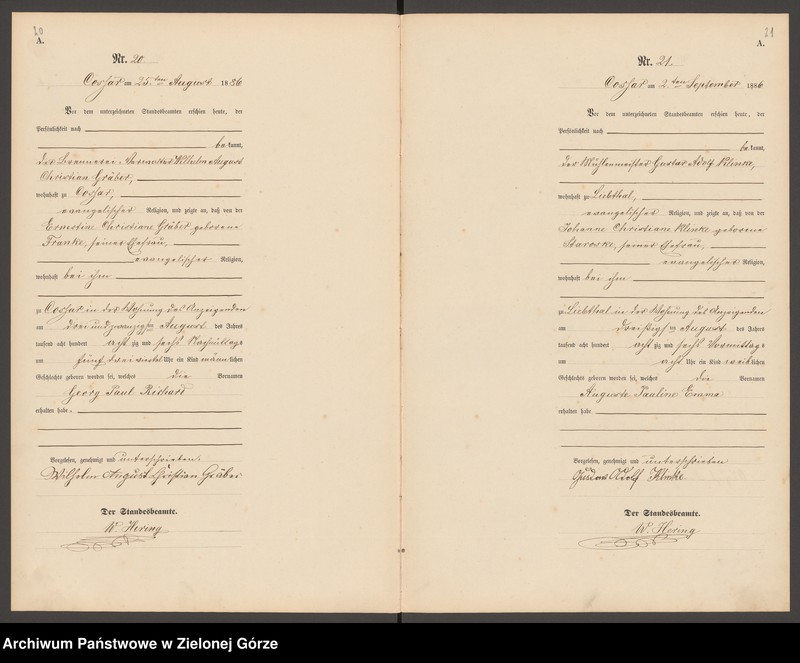 20
A.
Nr. 20.
Cossar am 25. ten August 1886
Vor dem unterzeichneten Standesbeamten erschien heute, der
Persönlichkeit nach
bekannt,
der Brennerei-Verwalter Wilhelm August
Christian Gräber,
wohnhaft zu Cossar,
evangelischer Religion, und zeigte an, daß von der
Ernestine Christiane Gräber geborene
Franke, seiner Ehefrau,
evangelischer Religion,
wohnhaft bei ihm
zu Cossar in der Wohnung des Anzeigenden
am drei und zwanzigsten August des Jahres
tausend acht hundert achtzig und sechs Nachmittags
um fünf drei viertel Uhr ein Kind männlichen
Geschlechts geboren worden sei, welches die Vornamen
Georg Paul Richard
erhalten habe.
Vorgelesen, genehmigt und unterschrieben.
Wilhelm August Christian Gräber
Der Standesbeamte.
W Hering
21
A.
Nr. 21.
Cossar am 2. ten September 1886
Vor dem unterzeichneten Standesbeamten erschien heute, der
Persönlichkeit nach
bekannt,
der Mühlenmeister Gustav Adolf Klenke,
wohnhaft zu Liebthal,
evangelischer Religion, und zeigte an, daß von der
Johanne Christiane Klenke geborene
Staroske, seiner Ehefrau,
evangelischer Religion,
wohnhaft bei ihm
zu Liebthal in der Wohnung des Anzeigenden
am dreißigsten August des Jahres
tausend acht hundert achtzig und sechs Vormittags
um acht Uhr ein Kind weiblichen
Geschlechts geboren worden sei, welches die Vornamen
Auguste Pauline Emma
erhalten habe
Vorgelesen, genehmigt und unterschrieben
Gustav Adolf Klinke
Der Standesbeamte.
W. Hering
Archiwum Państwowe w Zielonej Górze